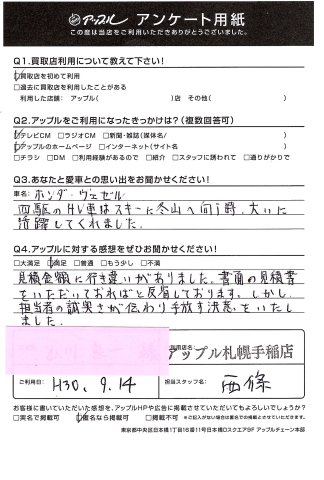 アップル アンケート用紙
この度は当店をご利用いただきありがとうございました。
Q1.買取店利用について教えて下さい!
☑買取店を初めて利用
□過去に買取店を利用したことがある
利用した店舗: アップル( )店 その他( )
Q2.アップルをご利用になったきっかけは?(複数回答可)
☑テレビCM □ラジオCM □新聞・雑誌(媒体名/ )
☑アップルのホームページ □インターネット(サイト名 )
□チラシ □DM □利用経験があるので □紹介 □スタッフに誘われて □通りがかりで
Q3.あなたと愛車との思い出をお聞かせください!
車名: ホンダ・ヴェゼル
四駆のHV車はスキーに冬山へ向う時、大いに
活躍してくれました。
Q4.アップルに対する感想をぜひお聞かせください!
□大満足 ☑満足 □普通 □もう少し □不満
見積金額に行き違いがありました。書面の見積書
をいただいておればと反省しております。しかし
担当者の誠実さが伝わり手放す決意をいたし
ました。
ご利用店名:
アップル札幌手稲店
ご利用日: H30. 9. 14
担当スタッフ名: 西條
お客様に書いていただいた感想を、アップルHPや広告に掲載させていただいてもよろしいでしょうか?
□実名で掲載可 ☑匿名なら掲載可 □掲載不可 ※ご記入がない場合は匿名での掲載とさせていただきます。
東京都中央区日本橋1丁目16番11号日本橋Dスクエア9F アップルチェーン本部